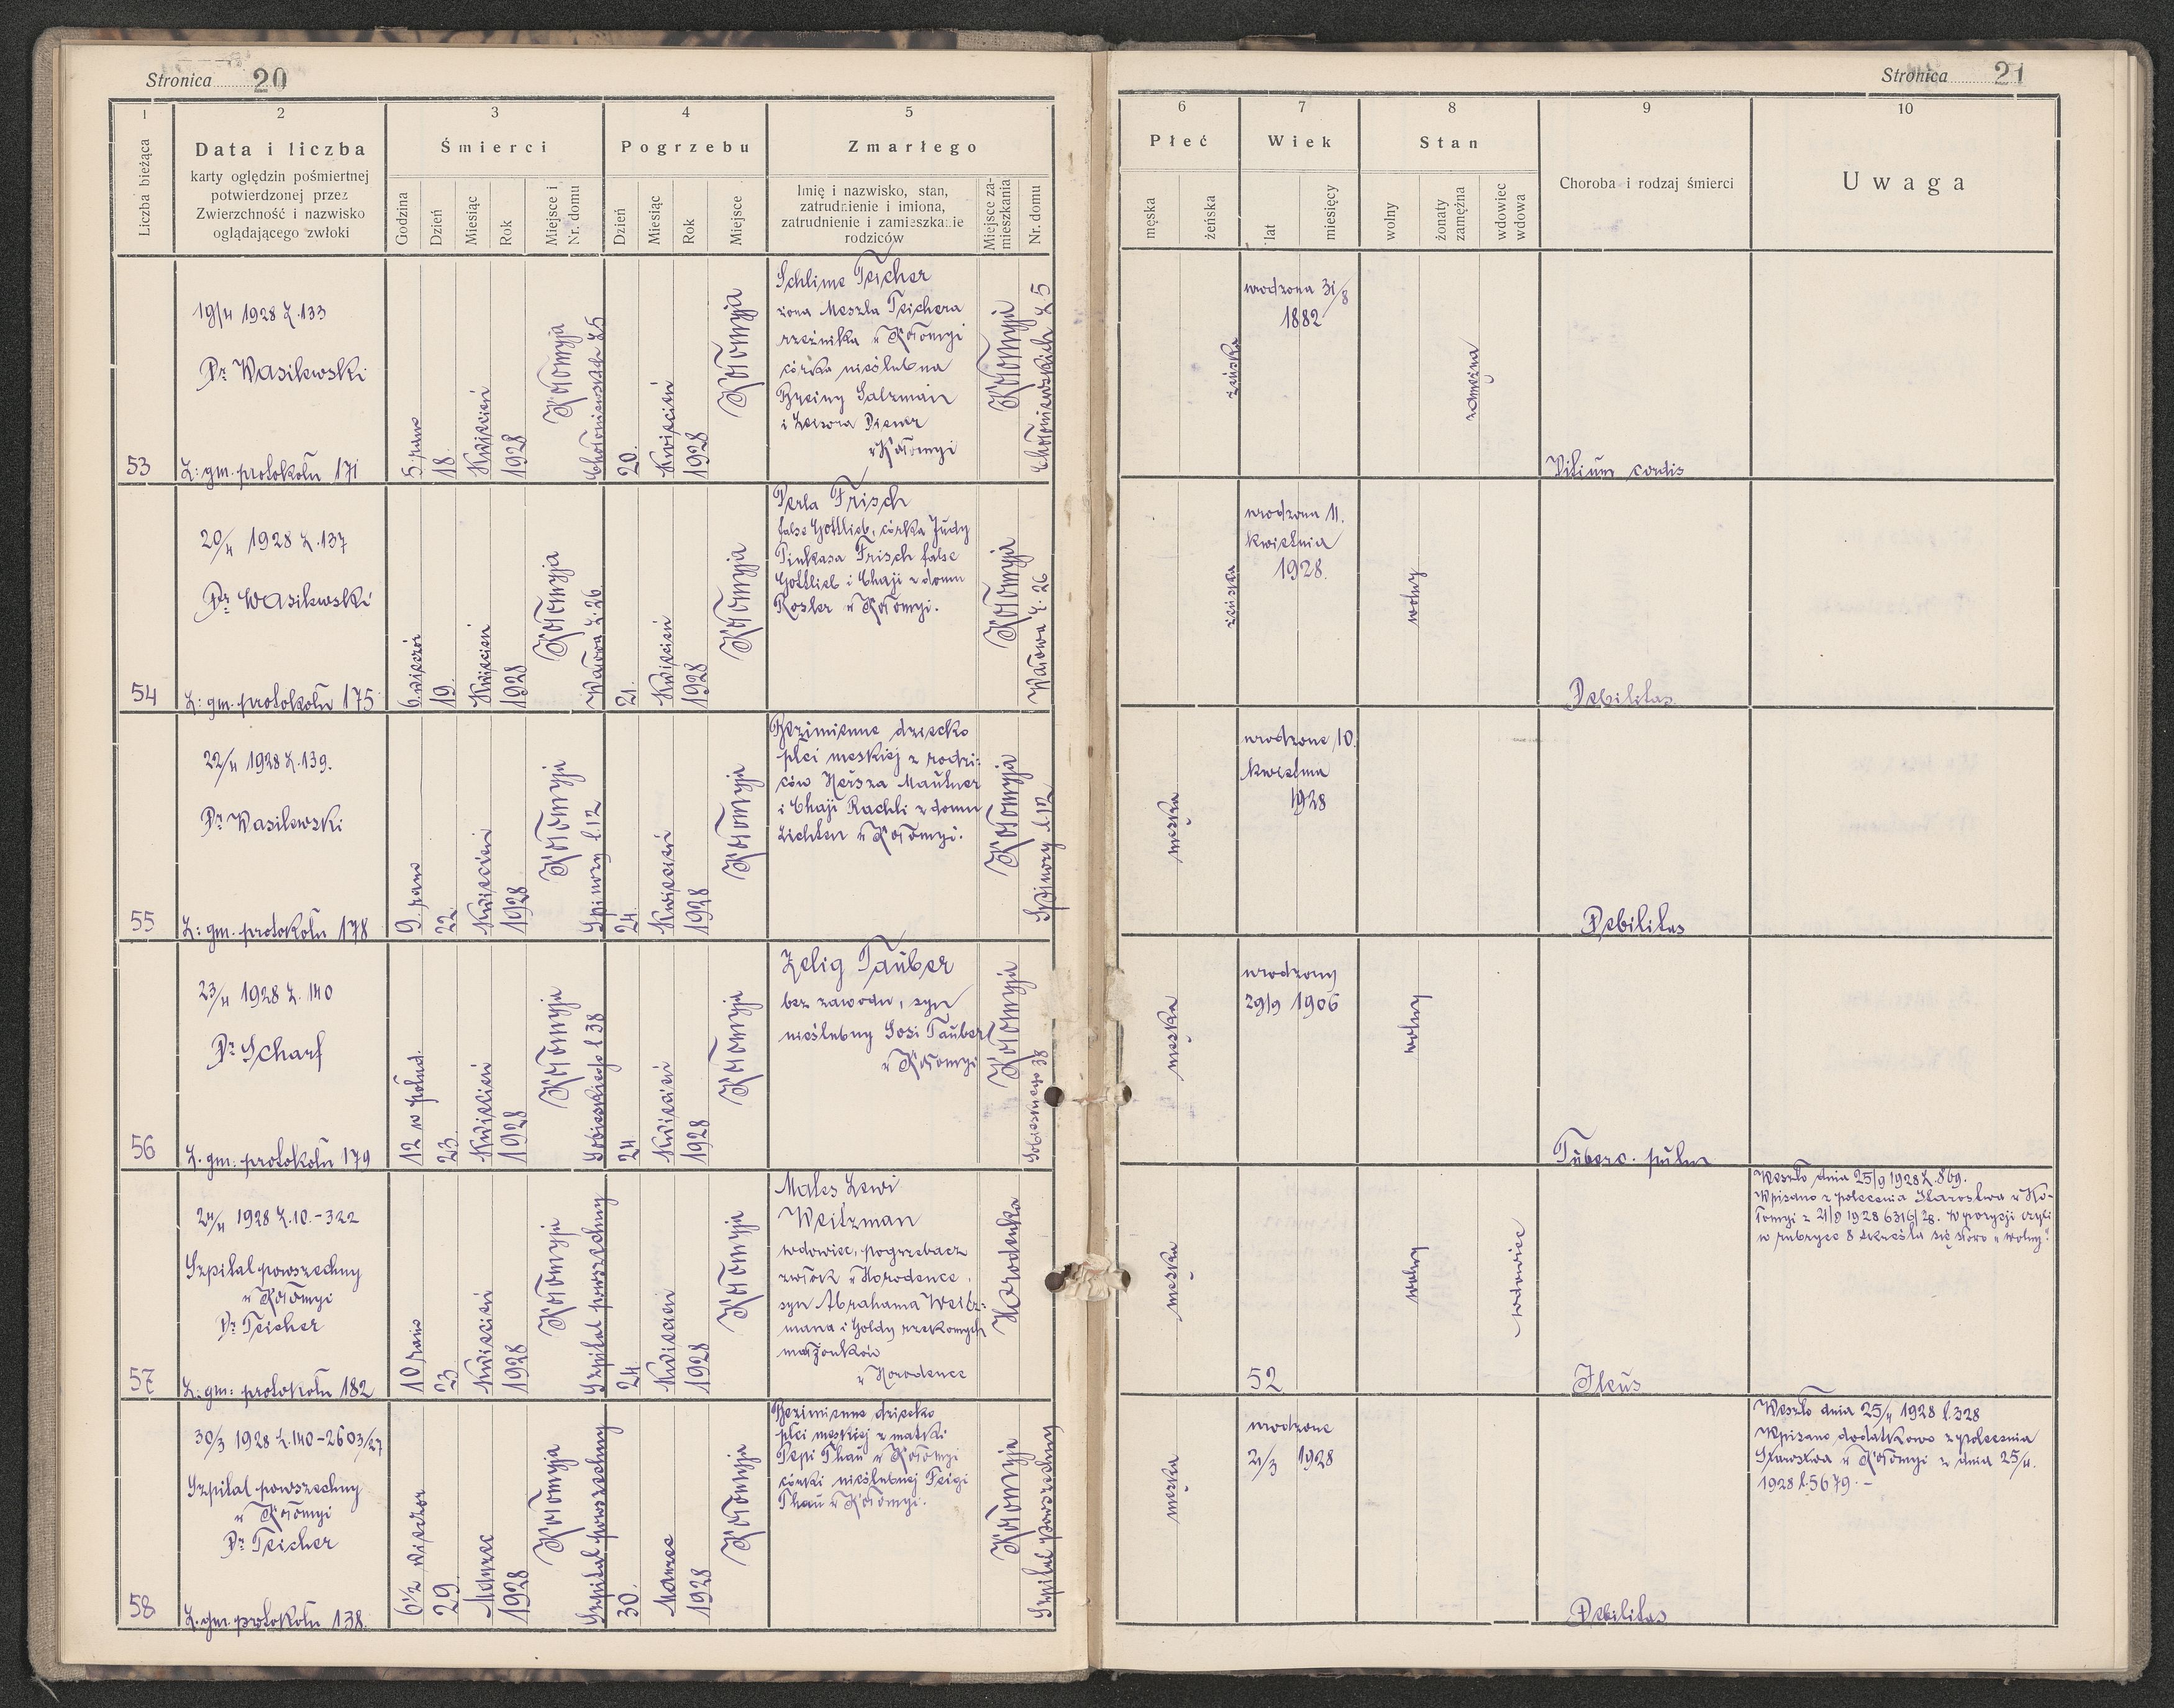 Stronica 20
1
2
3
4
5
Liczba bieżąca
Data i liczba
karty oględzin pośmiertnej
potwierdzonej przez
Zwierzchność i nazwisko
oglądającego zwłoki
Śmierci
Godzina
Dzień
Miesiąc
Rok
Miejsce i
Nr. domu
Pogrzebu
Dzień
Miesiąc
Rok
Miejsce
Zmarłego
Imię i nazwisko, stan,
zatrudnienie i imiona,
zatrudnienie i zamieszkanie
rodziców
Miejsce za-
mieszkania
Nr. domu
53
19/4 1928 L.133
Dr Wasilewski
L: gm. protokołu 171
5. rano
18.
Kwiecień
1928
Kołomyja
L5
20.
Kwiecień
1928
Kołomyja
Schlime Teicher
żona Meszla Teichera
rzeźnika w Kołomyi
córka nieślubna
Breiny Salzman
i Leizora Diener
w Kołomyi
Kołomyja
L.5
54
20/4 1928 L.137
Dr Wasilewski
L: gm. protokołu 175
6. wieczór
19.
Kwiecień
1928
Kołomyja
Wałowa L. 26
21.
Kwiecień
1928
Kołomyja
Perla Frisch
false Gottlieb, córka Judy
Pinkasa Frisch false
Gottlieb i Chaji z domu
Rosler w Kołomyi.
Kołomyja
Wałowa L. 26
55
22/4 1928 L.139.
Dr Wasilewski
L: gm. protokołu 178
9. rano
22
Kwiecień
1928
Kołomyja
Spinozy l.12
24.
Kwiecień
1928
Kołomyja
Bezimienne dziecko
płci męskiej z rodzi-
ców Hersza Mautner
i Chaji Rachli z domu
Lichten w Kołomyi.
Kołomyja
Spinozy l.12
56
23/4 1928 L. 140
Dr Scharf
L. gm. protokołu 179
12 w połud.
23.
Kwiecień
1928
Kołomyja
Sobieskiego l 38
24
Kwiecień
1928
Kołomyja
Zelig Tauber
bez zawodu, syn
nieślubny Sosi Tauber
w Kołomyi
Kołomyja
Sobieskiego 38
57
24/4 1928 L.10.-322
Szpital powszechny
w Kołomyi
Dr Teicher
L: gm: protokołu 182
10 rano
23
Kwiecień
1928
Kołomyja
Szpital powszechny
24
Kwiecień
1928
Kołomyja
Males Lewi
Weitzman
wdowiec, pogrzebacz
zwłok w Horodence.
syn Abrahama Weitz-
mana i Goldy rzekomych
małżonków
w Horodence
Horodenka
58
30/3 1928 L.140-2603/27
Szpital powszechny
w Kołomyi
Dr Teicher
L. gm. protokołu 138.
6½ wieczor
29.
Marzec
1928
Kołomyja
Szpital powszechny
30.
Marzec
1928
Kołomyja
Bezimienne dziecko
płci męskiej z matki
Pepi Thau w Kołomyi
córki nieślubnej Feigi
Thau w Kołomyi.
Kołomyja
Szpital powszechny
Stronica 21
6
7
8
9
10
Płeć
męska
żeńska
Wiek
lat
miesięcy
Stan
wolny
żonaty
zamężna
wdowiec
wdowa
Choroba i rodzaj śmierci
Uwaga
żeńska
urodzona 31/8
1882
zamężna
Vitium cordis
żeńska
urodzona 11.
kwietnia
1928.
wolny
Debilitas
męska
urodzone 10.
kwietnia
1928
Debilitas
męska
urodzony
29/9 1906
wolny
Tuberc. pulm
męska
52
wolny
wdowiec
Ileus
Weszło dnia 25/9 1928 L.869.
Wpisano z polecenia Starostwa w Ko-
łomyi z 21/9 1928 6316/28. W pozycji
w rubryce 8 skreśla się słowo "wolny".
męska
urodzone
21/3 1928
Debilitas
Weszło dnia 25/4 1928 l.328
Wpisano dodatkowo z polecenia
Starostwa w Kołomyi z dnia 25/4.
1928 l.5679.-